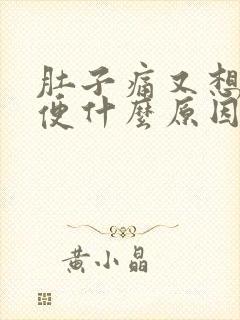 肚子痛又想
便什麼原因
黃小晶